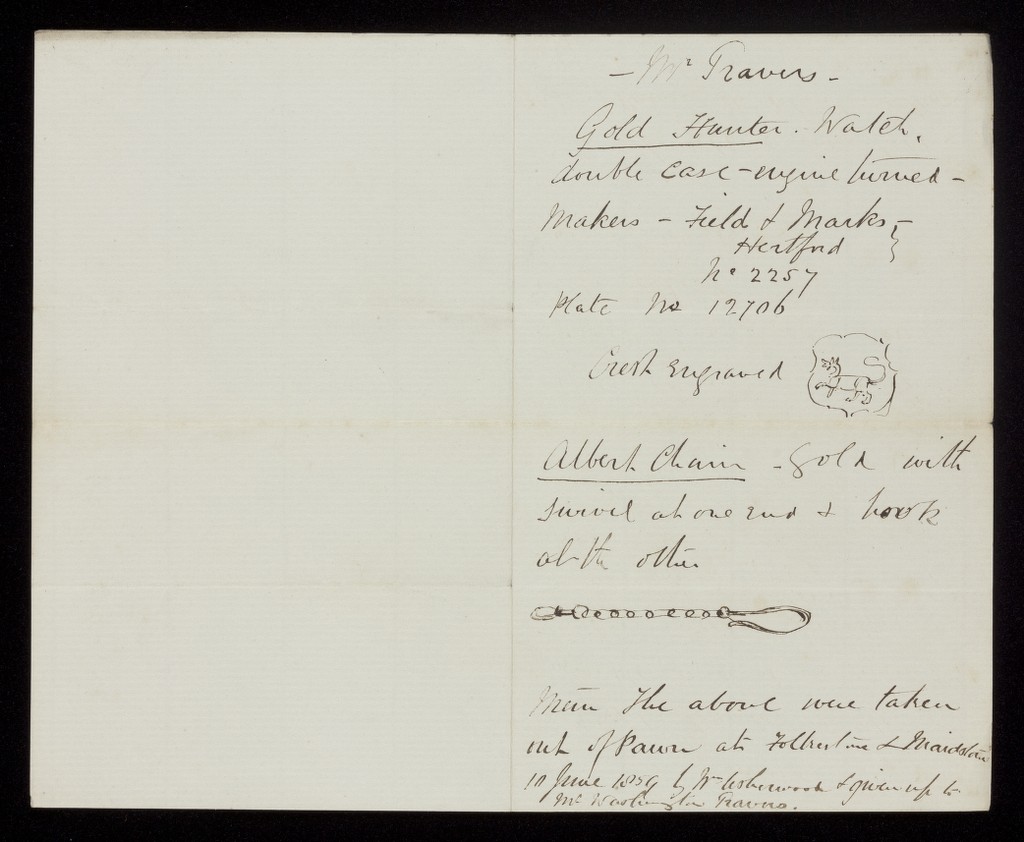 - Mr Travers -
Gold Hunter. Watch,
double case - engine turned -
Makers - Field & Marks -
Hertford
No 2257
Plate No 12706
Crest Engraved
Albert Chain - Gold with
swivel at one end & hook
at the other
Mem The above were taken
out of Pawn at Folkestone & Maidstone
10 June 1859 by Wm Usherwood & given up to
Mr Washington Travers.